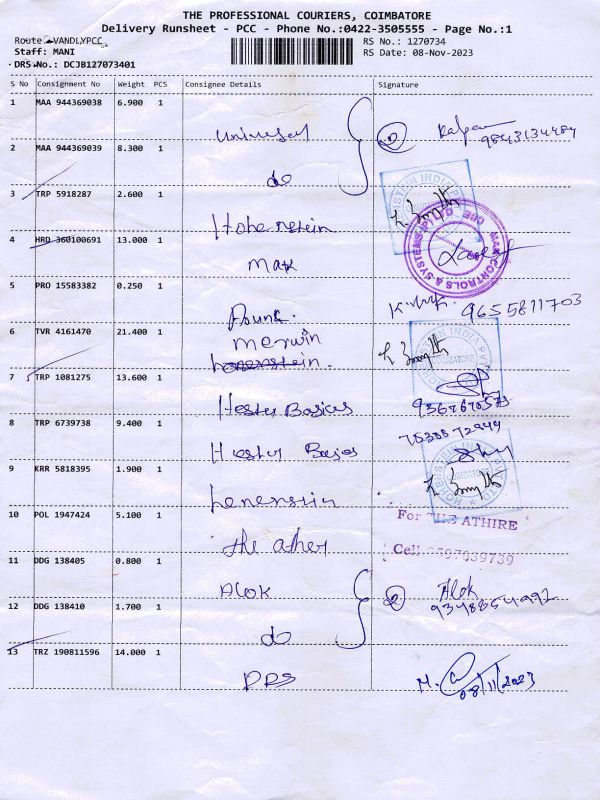 THE PROFESSIONAL COURIERS, COIMBATORE
Delivery Runsheet - PCC - Phone No.:0422-3505555 - Page No.:1
Route: VANDLYPCC
RS No.: 1270734
Staff: MANI
RS Date: 08-Nov-2023
DRS No.: DCJB127073401
S No Consignment No Weight PCS Consignee Details Signature
1 MAA 944369038 6.900 1 Universal
9843134484
2 MAA 944369039 8.300 1 do
3 TRP 5918287 2.600 1 Hohenstein
4 HRD 360100691 13.000 1 Mak
MAK CONTROLS & SYSTEMS (P) LTD
5 PRO 15583382 0.250 1
9655811703
6 TVR 4161470 21.400 1 Merwin
7 TRP 1081275 13.600 1 Hester Basics
8 TRP 6739738 9.400 1 Hester
9 KRR 5818395 1.900 1
HOHENSTEIN INDIA PVT
COIMBATORE
10 POL 1947424 5.100 1 The
For THE ATHIRE
Cell:
11 DDG 138405 0.800 1 Alok
Alok
12 DDG 138410 1.700 1 do
13 TRZ 190811596 14.000 1 DRS
08/11/2023